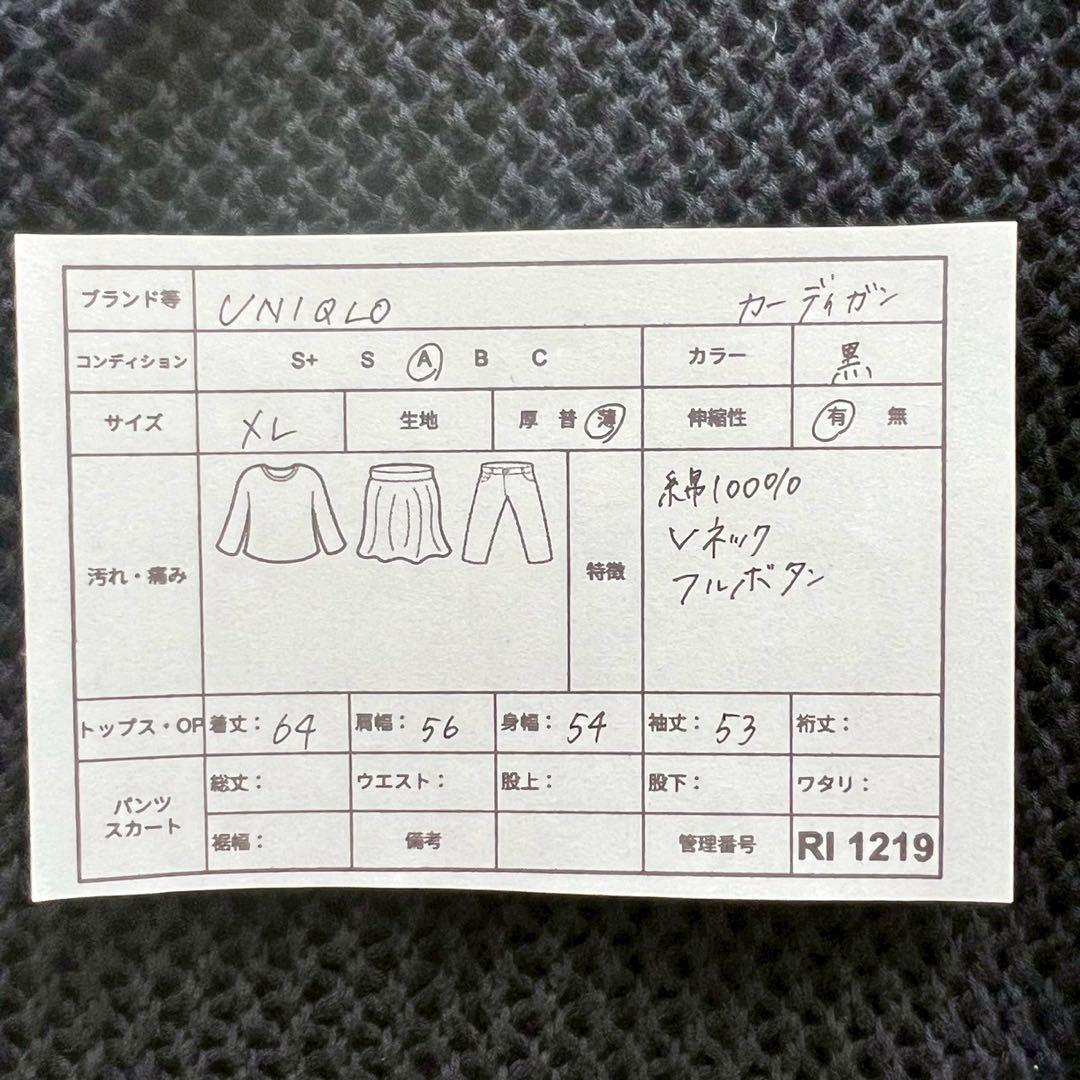 ブランド等 UNIQLO カーディガン
コンディション S+ S A B C カラー 黒
サイズ XL 生地 厚 普 薄 伸縮性 有 無
汚れ・痛み 特徴
綿100%
Vネック
フルボタン
トップス・OP 着丈：64 肩幅：56 身幅：54 袖丈：53 裄丈：
パンツ
スカート
総丈： ウエスト： 股上： 股下： ワタリ：
裾幅： 備考 管理番号 RI 1219